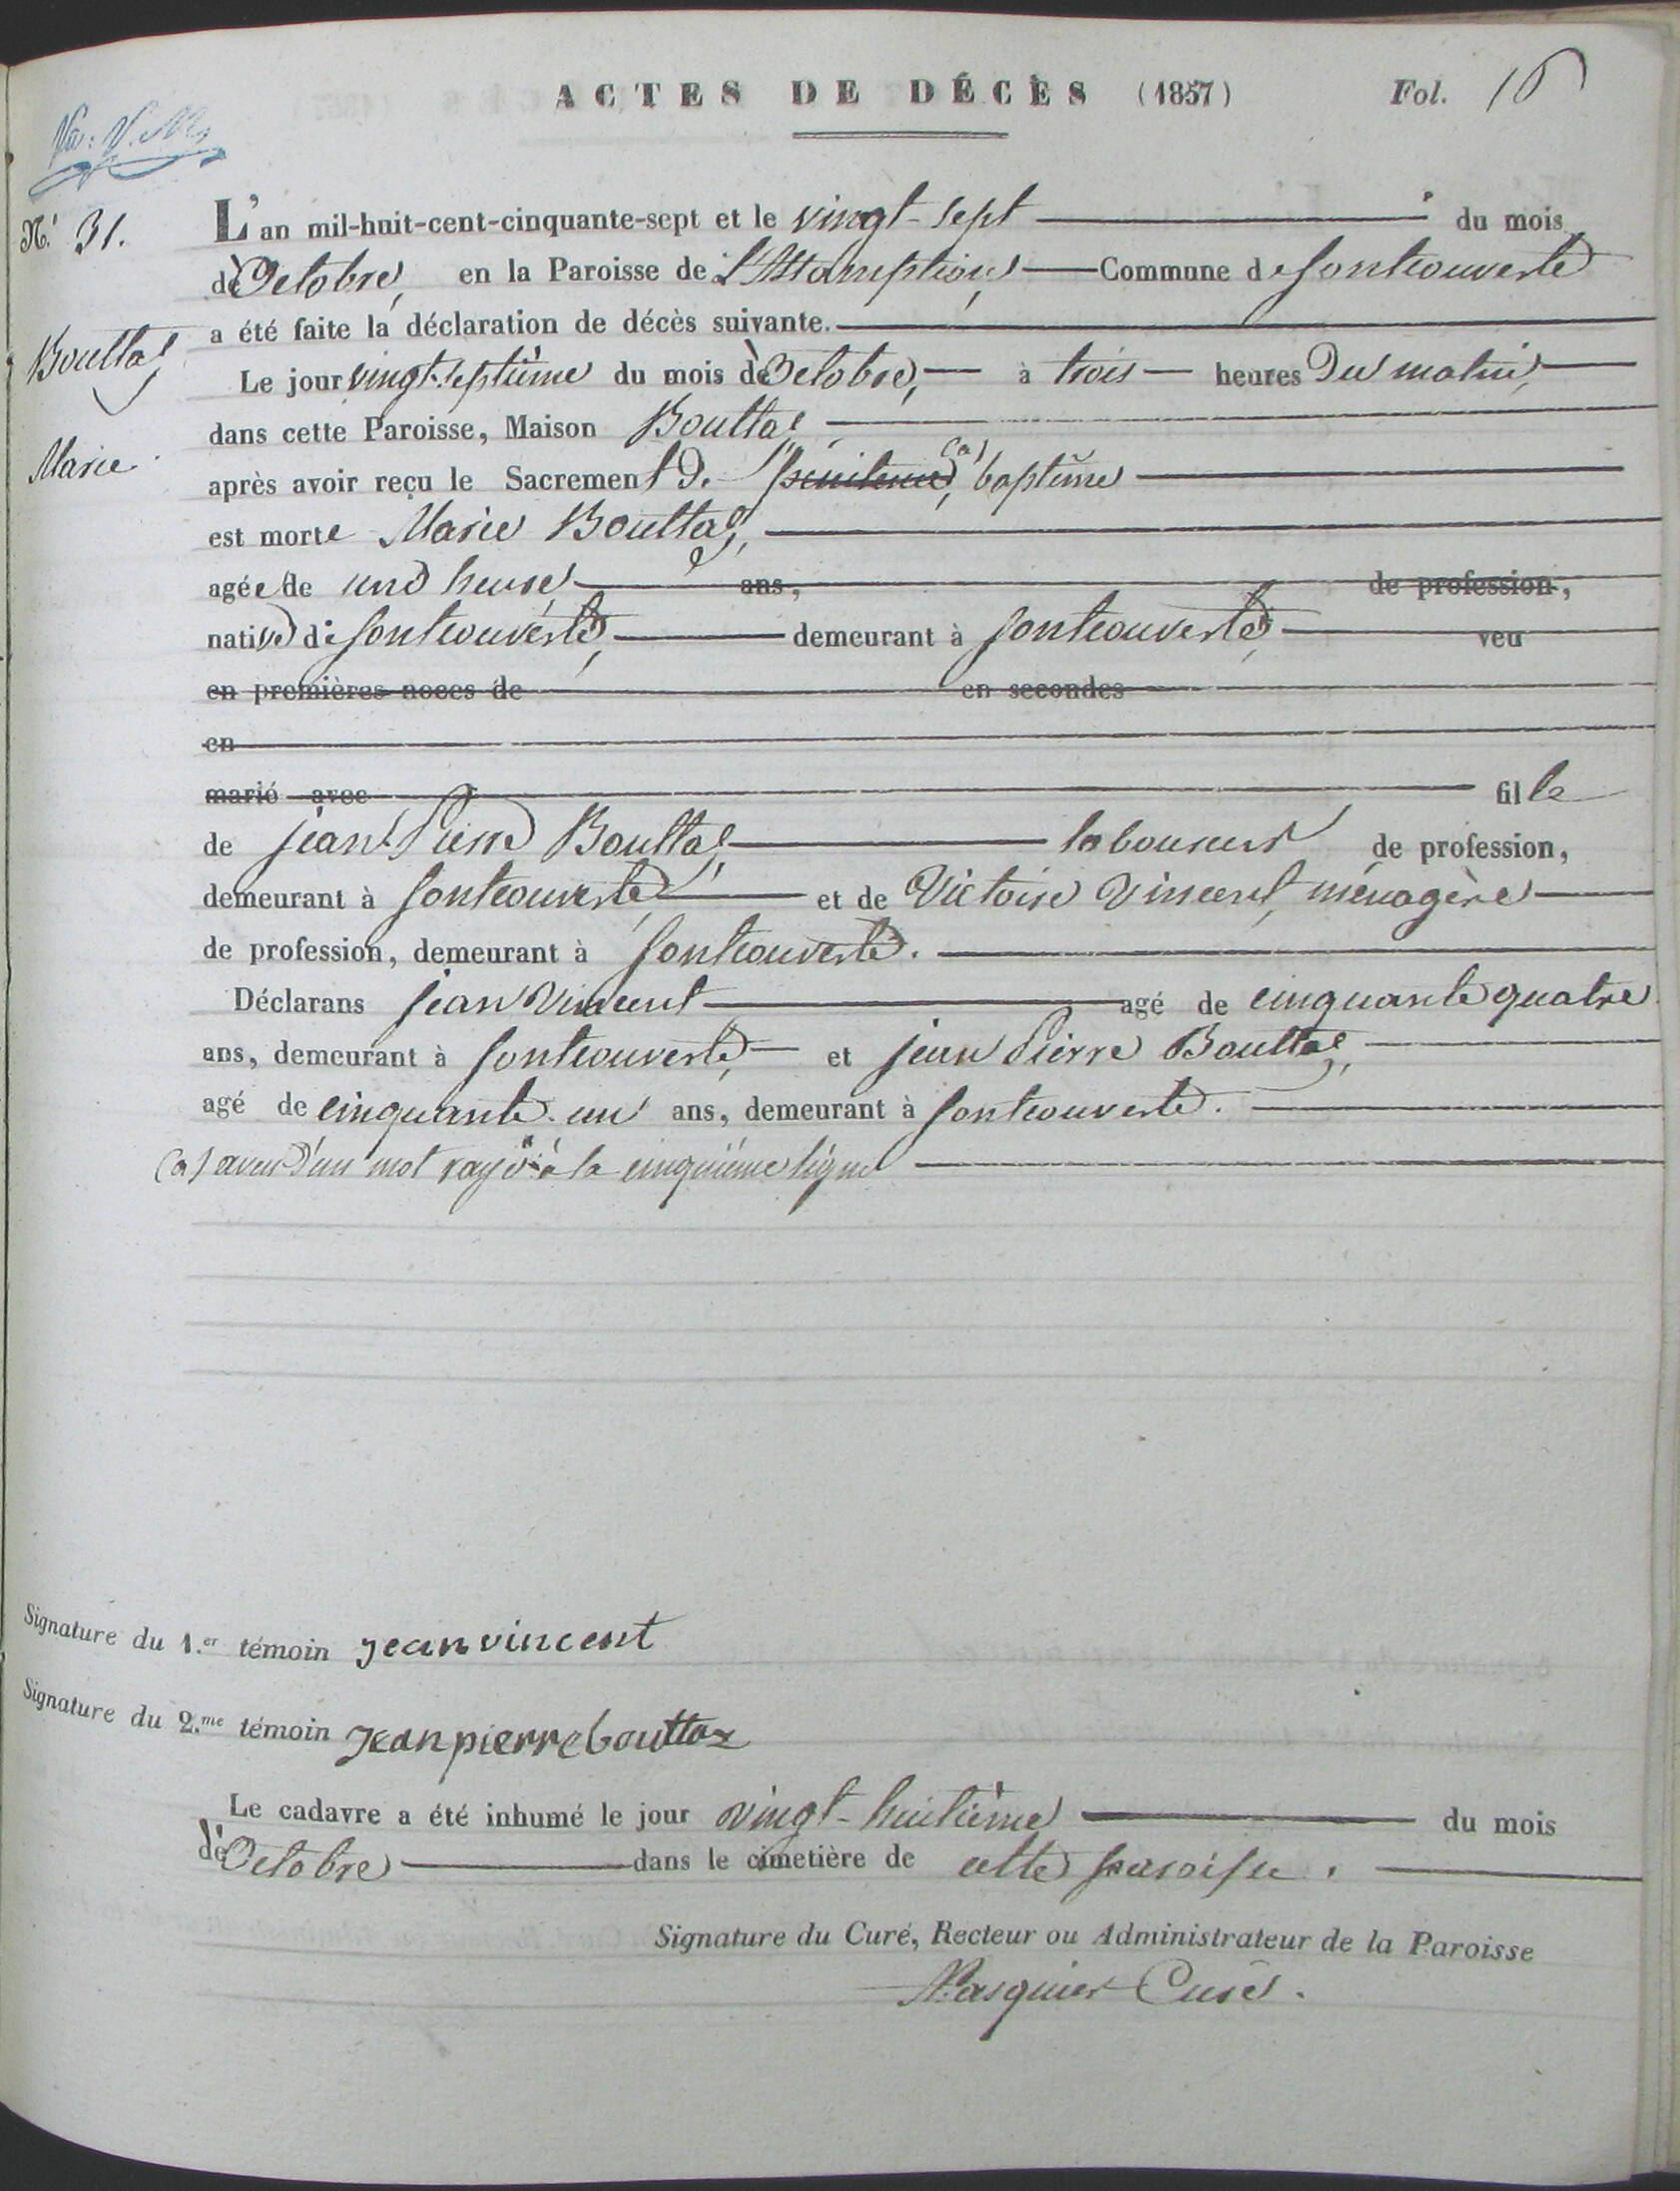 ACTES DE DÉCÈS (1857) Fol. 16
N.º 31.
L'an mil-huit-cent-cinquante-sept et le vingt-sept du mois
d'Octobre, en la Paroisse de L'Assomption, Commune de fontcouverte
a été faite la déclaration de décès suivante.
Bouttaz
Le jour vingt-septième du mois d'Octobre, à trois heures du matin,
dans cette Paroisse, Maison Bouttaz
Marie
après avoir reçu le Sacrement de pénitence, (a) baptême
est morte Marie Bouttaz,
agée de une heure ans, de profession,
native de fontcouverte, demeurant à fontcouverte, veu
en premières noces de en secondes
en
marié avec fille
de jean Pierre Bouttaz, laboureur de profession,
demeurant à fontcouverte, et de Victoire Vincent, ménagère
de profession, demeurant à fontcouverte.
Déclarans jean Vincent agé de cinquante quatre
ans, demeurant à fontcouverte, et jean Pierre Bouttaz,
agé de cinquante-un ans, demeurant à fontcouverte.
(a) aveu d'un mot rayé à la cinquième ligne
Signature du 1.er témoin jean vincent
Signature du 2.me témoin jean pierre bouttaz
Le cadavre a été inhumé le jour vingt-huitième du mois
d'Octobre dans le cimetière de cette paroisse.
Signature du Curé, Recteur ou Administrateur de la Paroisse
Pasquier Curé.